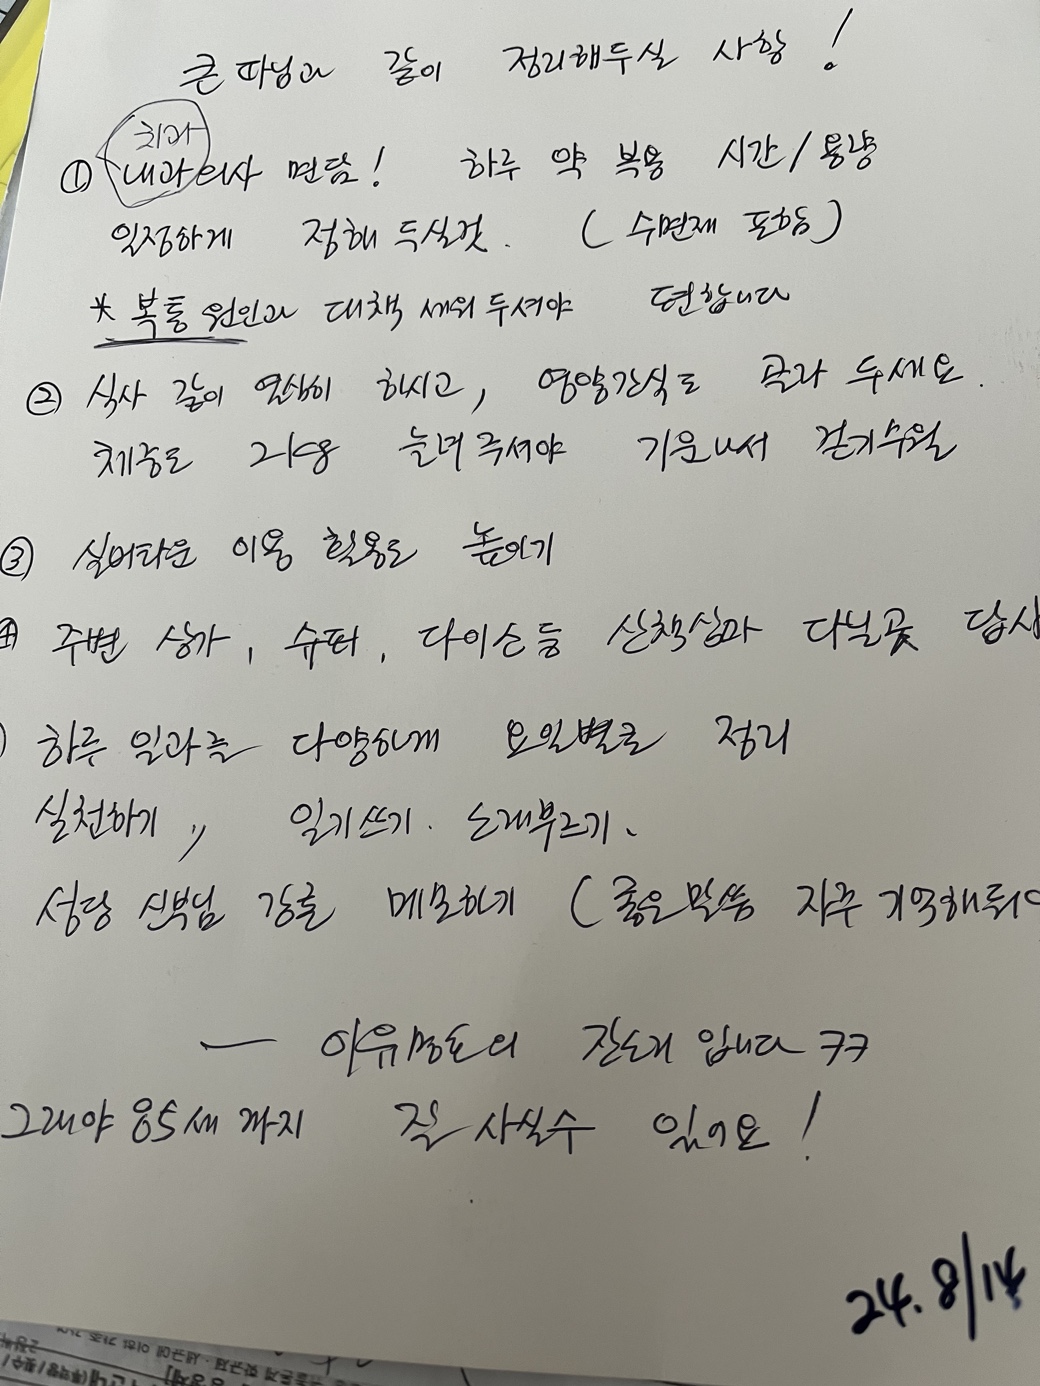 큰따님과 같이 정리해두실 사항!
치과
① 내과의사 면담! 하루 약 복용 시간/용량
일정하게 정해 두실것. (수면제 포함)
* 복통 원인과 대책 세워두셔야 편합니다
② 식사 같이 열심히 하시고, 영양간식도 골라 두세요.
체중도 늘려주셔야 기운나서 걷기수월
③ 실버타운 이용 활용도 높이기
④ 주변 상가, 슈퍼, 다이소등 산책삼아 다닐곳 답사
하루 일과를 다양하게 요일별로 정리
실천하기,, 일기쓰기. 노래부르기.
성당 신부님 강론 메모하기 (좋은말씀 자주 기억해둬야
— 잔소리 입니다 ㅋㅋ
그래야 85세까지 잘 사실수 있어요!
24. 8/14